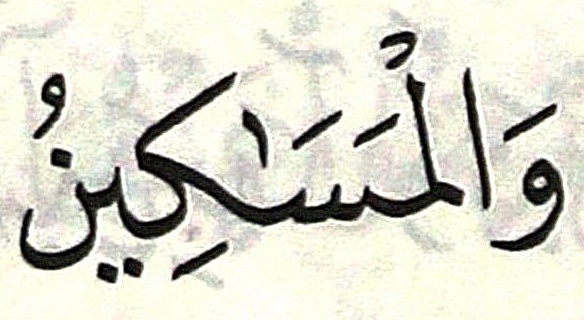 وَالْمَسَٰكِينُ